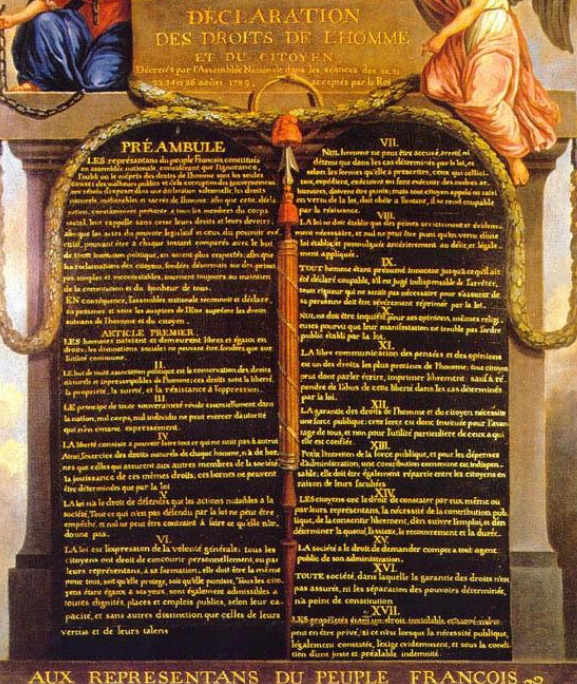 DÉCLARATION
DES DROITS DE L'HOMME
ET DU CITOYEN,
Décrétés par l'Assemblée Nationale dans les séances des 20, 21
23, 24 et 26 août 1789, acceptés par le Roi
PRÉAMBULE
LES représentans du peuple François, constitués
en assemblée nationale, considérant que l'ignorance,
l'oubli ou le mépris des droits de l'homme sont les seules
causes des malheurs publics et de la corruption des gouvernemens
ont résolu d'exposer dans une déclaration solemnelle, les droits
naturels, inaliénables et sacrés de l'homme; afin que cette décla
ration, constamment présente a tous les membres du corps
social, leur rappelle sans cesse leurs droits et leurs devoirs;
afin que les actes du pouvoir législatif et ceux du pouvoir exé
cutif, pouvant être à chaque instant comparés avec le but
de toute institution politique, en soient plus respectés; afin que
les réclamations des citoyens, fondées désormais sur des princi
pes simples et incontestables, tournent toujours au maintien
de la constitution et du bonheur de tous.
EN conséquence, l'assemblée nationale reconnoit et déclare
en présence et sous les auspices de l'Etre suprême les droits
suivans de l'homme et du citoyen.
ARTICLE PREMIER
LES hommes naissent et demeurent libres et égaux en
droits; les distinctions sociales ne peuvent être fondées que sur
l'utilité commune.
II.
LE but de toute association politique est la conservation des droits
naturels et imprescriptibles de l'homme; ces droits sont la liberté,
la propriété, la sureté, et la résistance à l'oppression.
III.
LE principe de toute souveraineté réside essentiellement dans
la nation, nul corps, nul individu ne peut exercer d'autorité
qui n'en émane expressément.
IV
LA liberté consiste a pouvoir faire tout ce qui ne nuit pas à autrui
Ainsi, l'exercice des droits naturels de chaque homme, n'a de bor
nes que celles qui assurent aux autres membres de la société
la jouissance de ces mêmes droits; ces bornes ne peuvent
être déterminées que par la loi
V
LA loi n'a le droit de défendre que les actions nuisibles a la
société. Tout ce qui n'est pas défendu par la loi ne peut être
empêché, et nul ne peut être contraint à faire ce qu'elle n'or
donne pas.
VI.
LA loi est l'expression de la volonté générale; tous les
citoyens ont droit de concourir personnellement, ou par
leurs représentans, à sa formation; elle doit être la même
pour tous, soit qu'elle protege, soit qu'elle punisse. Tous les cito
yens étant égaux à ses yeux, sont également admissibles a
toutes dignités, places et emplois publics, selon leur ca
pacité, et sans autres distinction que celles de leurs
vertus et de leurs talens
VII.
NUL homme ne peut être accusé, arreté, ni
détenu que dans les cas déterminés par la loi, et
selon les formes qu'elle a prescrites, ceux qui sollici
tent, expédient, exécutent ou font exécuter des ordres ar
bitraires, doivent être punis; mais tout citoyen appelé ou saisi
en vertu de la loi, doit obéir a l'instant, il se rend coupable
par la résistance.
VIII.
LA loi ne doit établir que des peines strictement et évidem
ment nécessaire, et nul ne peut être puni qu'en vertu d'une
loi établie, et promulguée antérierement au délit, et légale
ment appliquée.
IX.
TOUT homme étant présumé innocent jusqu'à ce qu'il ait
été déclaré coupable, s'il est jugé indispensable de l'arrêter,
toute rigueur qui ne serait pas nécessaire pour s'assurer de
sa personne doit être sévèrement réprimée par la loi.
X
NUL ne doit être inquiété pour ses opinions, mêmes religi
euses pourvu que leur manifestation ne trouble pas l'ordre
public établi par la loi.
XI.
LA libre communication des pensées et des opinions
est un des droits les plus precieux de l'homme; tout citoyen
peut donc parler écrire, imprimer librement: sauf à ré
pondre de l'abus de cette liberté dans les cas déterminés
par la loi.
XII.
LA garantie des droits de l'homme et du citoyen nécessite
une force publique; cette force est donc instituée pour l'avan
tage de tous, et non pour l'utilité particuliere de ceux a qui
elle est confiée.
XIII.
POUR l'entretien de la force publique, et pour les dépenses
d'administration, une contribution commune est indispen
sable; elle doit être également répartie entre les citoyens en
raison de leurs facultées
XIV
LES citoyens ont le droit de constater par eux même ou
par leurs représentans, la nécessité de la contribution pub
lique, de la consentir librement, d'en suivre l'emploi, et d'en
déterminer la quotité, l'assiette, le recouvrement et la durée.
XV.
LA société a le droit de demander compte a tout agent
public de son administration.
XVI.
TOUTE société, dans laquelle la garantie des droits n'est
pas assurée, ni les séparation des pouvoirs déterminée,
n'a point de constitution
XVII.
LES propriétés étant un droit inviolable et sacré, nul ne
peut en être privé, si ce n'est lorsque la nécessité publique,
légalement constatée, l'exige evidemment, et sous la condi
tion d'une juste et préalable indemnité.
AUX REPRESENTANS DU PEUPLE FRANCOIS